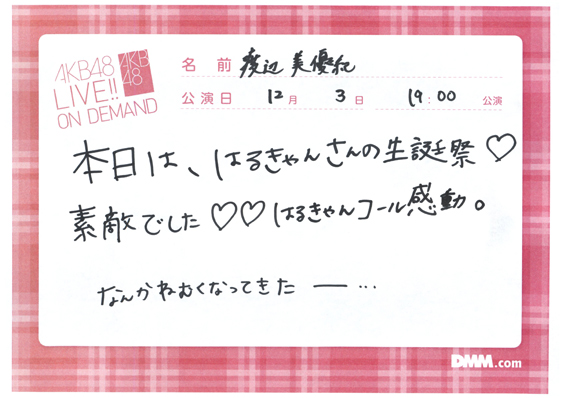 AKB48
LIVE!!
ON DEMAND
AKB
48
名前 渡辺 美優紀
公演日 12月 3日 19:00 公演
本日は、はるきゃんさんの生誕祭♡
素敵でした♡♡はるきゃんコール感動。
なんかねむくなってきたー…
DMM.com